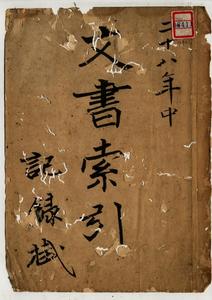 二十八年中
文書索引
記録掛